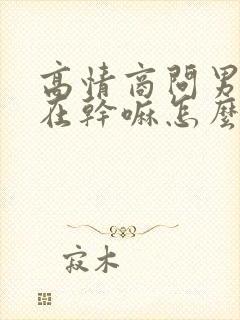 高情商問男
在幹嘛怎麼
寂木